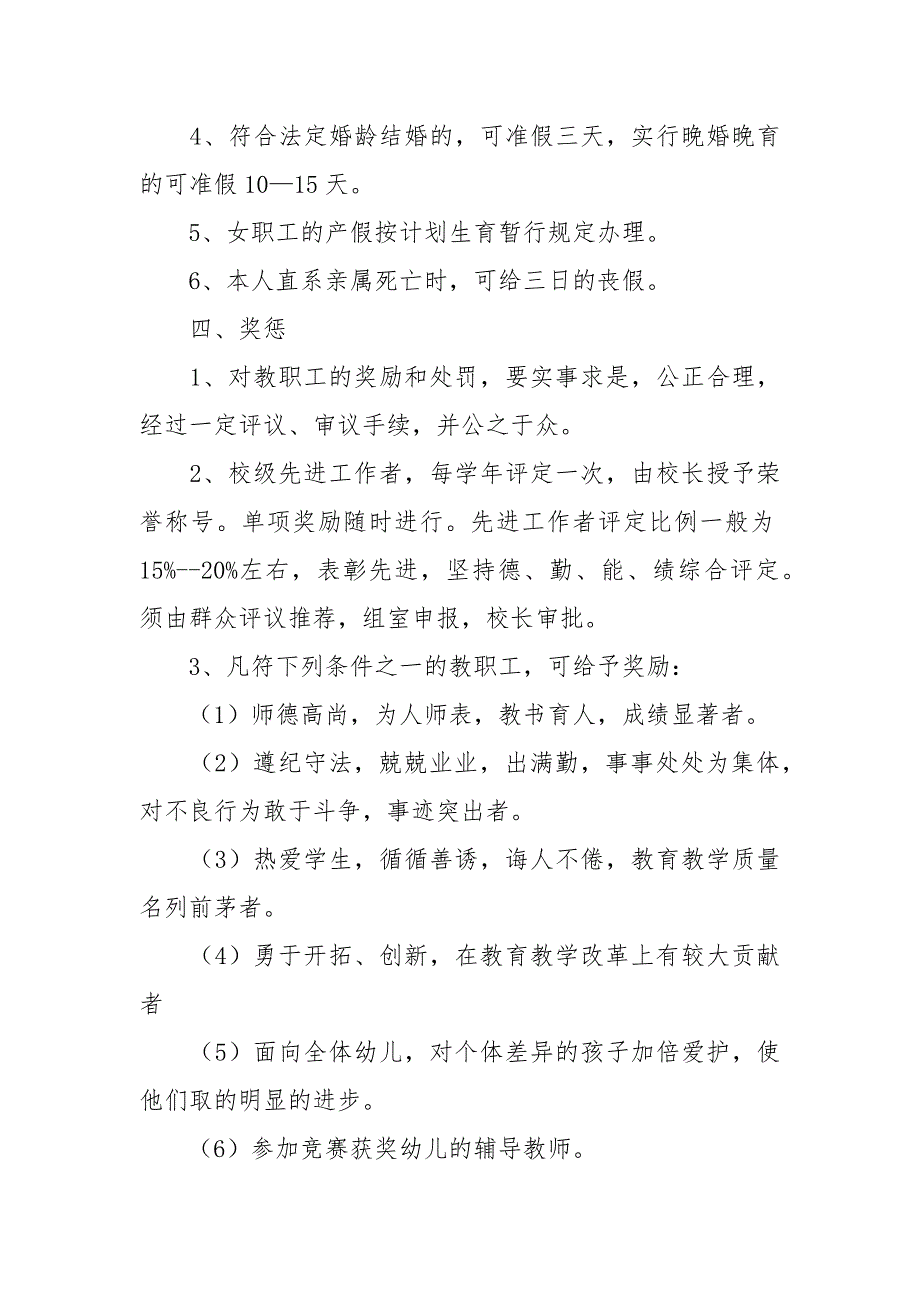 4、符合法定婚龄结婚的，可准假三天，实行晚婚晚育
的可准假 10—15 天。
5、女职工的产假按计划生育暂行规定办理。
6、本人直系亲属死亡时，可给三日的丧假。
四、奖惩
1、对教职工的奖励和处罚，要实事求是，公正合理，
经过一定评议、审议手续，并公之于众。
2、校级先进工作者，每学年评定一次，由校长授予荣
誉称号。单项奖励随时进行。先进工作者评定比例一般为
15%--20%左右，表彰先进，坚持德、勤、能、绩综合评定。
须由群众评议推荐，组室申报，校长审批。
3、凡符下列条件之一的教职工，可给予奖励：
（1）师德高尚，为人师表，教书育人，成绩显著者。
（2）遵纪守法，兢兢业业，出满勤，事事处处为集体，
对不良行为敢于斗争，事迹突出者。
（3）热爱学生，循循善诱，诲人不倦，教育教学质量
名列前茅者。
（4）勇于开拓、创新，在教育教学改革上有较大贡献
者
（5）面向全体幼儿，对个体差异的孩子加倍爱护，使
他们取的明显的进步。
（6）参加竞赛获奖幼儿的辅导教师。